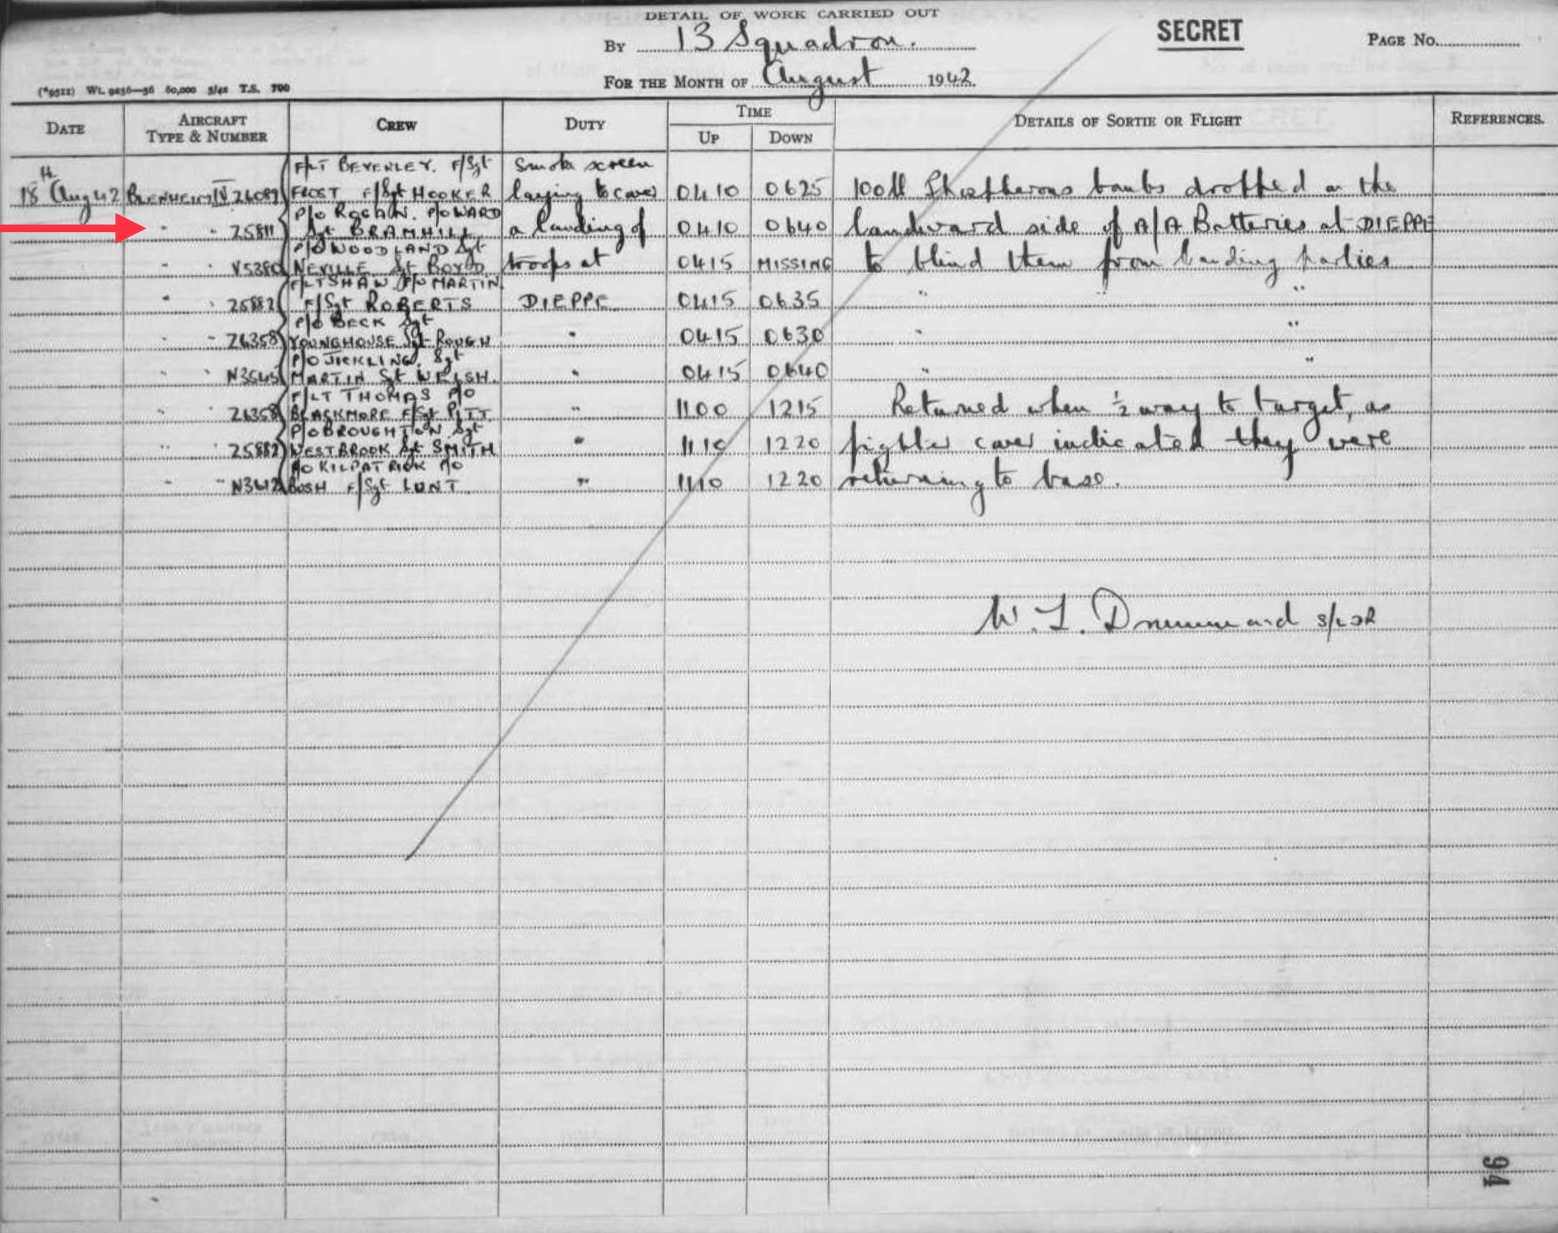 DETAIL OF WORK CARRIED OUT
BY 13 Squadron.
SECRET
PAGE No.
FOR THE MONTH OF August 1942
(*9522) Wt. 9256—56 60,000 5/42 T.S. 700
DATE AIRCRAFT TYPE & NUMBER CREW DUTY TIME UP DOWN DETAILS OF SORTIE OR FLIGHT REFERENCES.
F/LT BEVERLEY. F/Sgt Smoke screen
18th Aug 42 BLENHEIM IV Z6089 FROST F/Sgt HOOKER laying to cover 0410 0625 100lb Phosphorous bombs dropped on the
P/O ROGAN. P/O WARD
" " Z5811 Sgt BRAMHILL a landing of 0410 0640 landward side of A/A Batteries at DIEPPE
P/O WOODLAND Sgt
" " V5380 NEVILLE Sgt BOYD troops at 0415 MISSING to blind them from landing parties
F/LT SHAW P/O MARTIN
" " Z5882 F/Sgt ROBERTS DIEPPE 0415 0635 " " "
P/O BECK Sgt
" " Z6358 YOUNGHOUSE Sgt ROUGH " 0415 0630 " "
P/O JICKLING. Sgt
" " N3545 MARTIN Sgt WELSH. " 0415 0640 " "
F/LT THOMAS P/O
" " Z6358 BLACKMORE F/Sgt PITT " 1100 1215 Returned when ½ way to target, as
P/O BROUGHTON Sgt
" " Z5882 WESTBROOK Sgt SMITH " 1110 1220 fighter cover indicated they were
P/O KILPATRICK P/O
" " BUSH F/Sgt LUNT. " 1110 1220 returning to base.
W. L. Drummond S/LDR
94